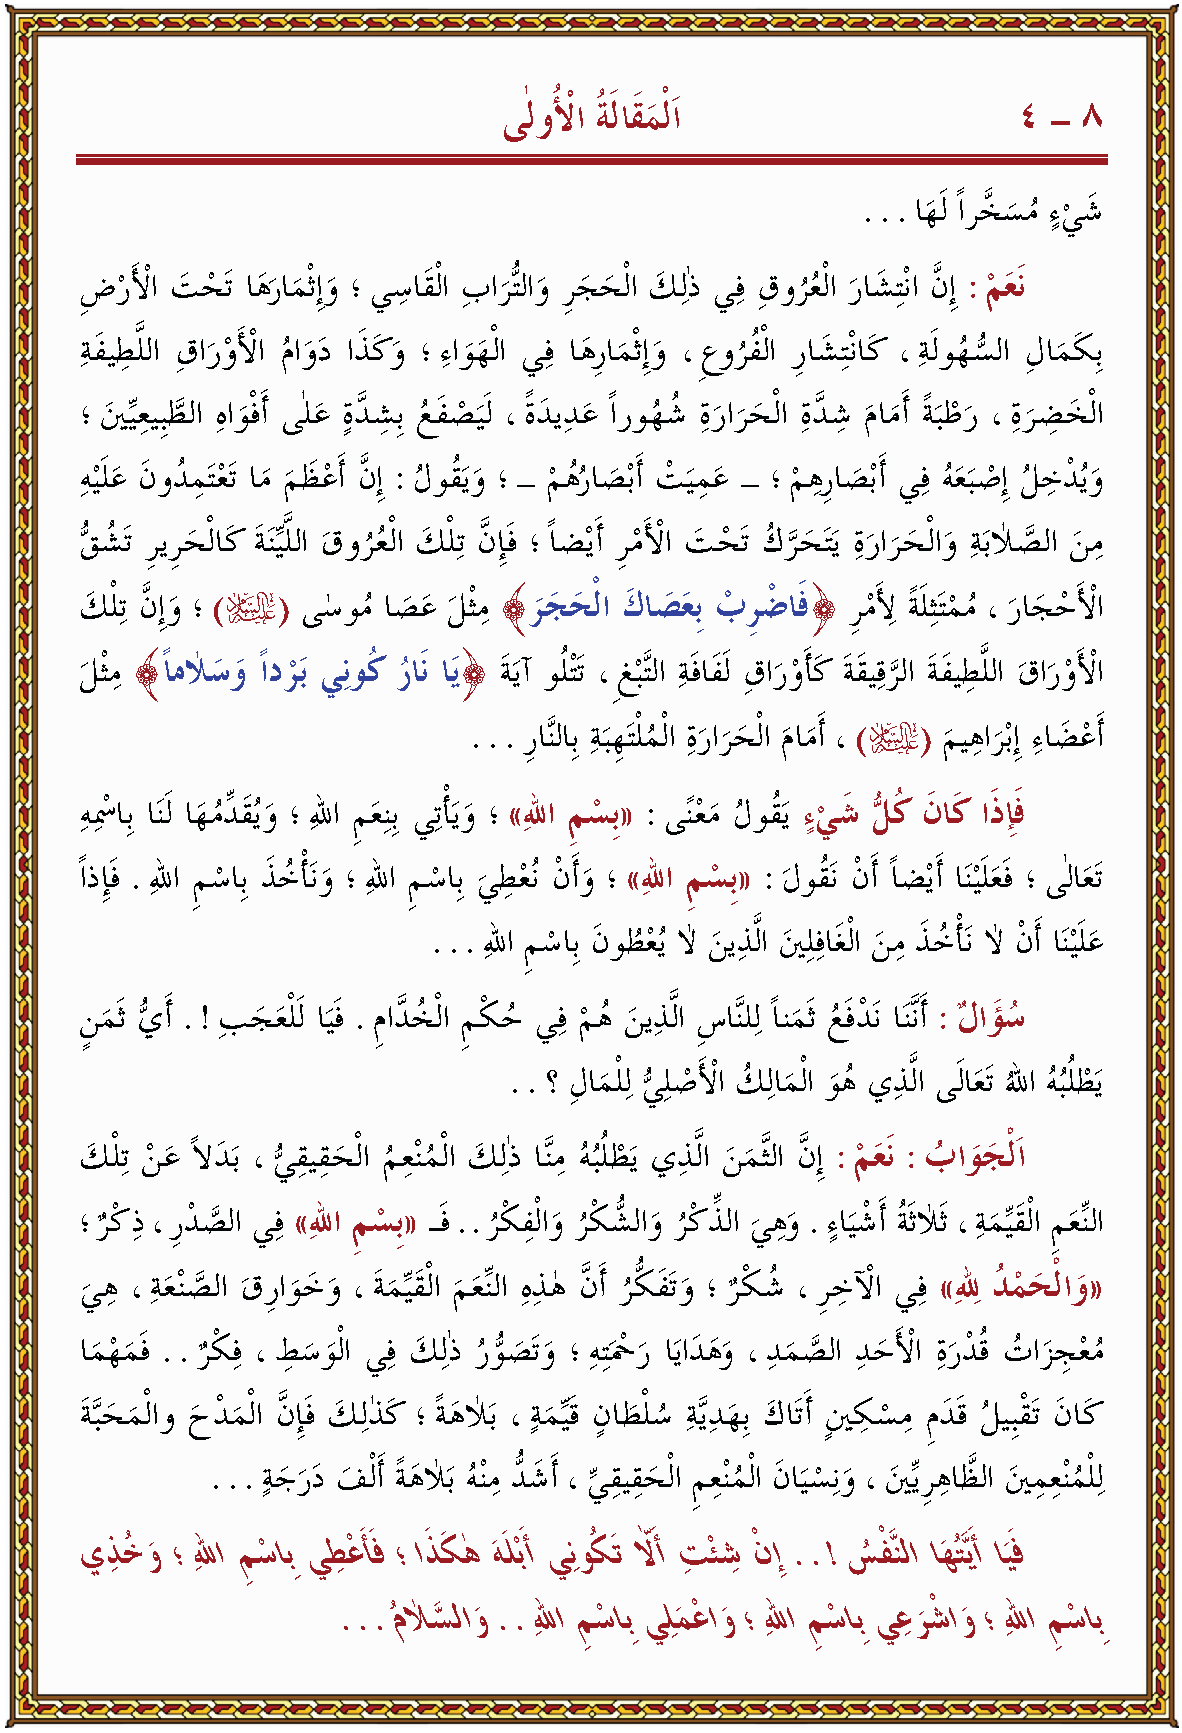 ٨ – ٤ اَلْمَقَالَةُ الْأُولٰى
شَيْءٍ مُسَخَّراً لَهَا . . .
نَعَمْ : إِنَّ انْتِشَارَ الْعُرُوقِ فِي ذٰلِكَ الْحَجَرِ وَالتُّرَابِ الْقَاسِي ؛ وَإِثْمَارَهَا تَحْتَ الْأَرْضِ
بِكَمَالِ السُّهُولَةِ ، كَانْتِشَارِ الْفُرُوعِ ، وَإِثْمَارِهَا فِي الْهَوَاءِ ؛ وَكَذَا دَوَامُ الْأَوْرَاقِ اللَّطِيفَةِ
الْخَضِرَةِ ، رَطْبَةً أَمَامَ شِدَّةِ الْحَرَارَةِ شُهُوراً عَدِيدَةً ، لَيَصْفَعُ بِشِدَّةٍ عَلٰى أَفْوَاهِ الطَّبِيعِيِّينَ ؛
وَيُدْخِلُ إِصْبَعَهُ فِي أَبْصَارِهِمْ ؛ – عَمِيَتْ أَبْصَارُهُمْ – ؛ وَيَقُولُ : إِنَّ أَعْظَمَ مَا تَعْتَمِدُونَ عَلَيْهِ
مِنَ الصَّلَابَةِ وَالْحَرَارَةِ يَتَحَرَّكُ تَحْتَ الْأَمْرِ أَيْضاً ؛ فَإِنَّ تِلْكَ الْعُرُوقَ اللَّيِّنَةَ كَالْحَرِيرِ تَشُقُّ
الْأَحْجَارَ ، مُمْتَثِلَةً لِأَمْرِ ﴿فَاضْرِبْ بِعَصَاكَ الْحَجَرَ﴾ مِثْلَ عَصَا مُوسٰى (عليه السلام) ؛ وَإِنَّ تِلْكَ
الْأَوْرَاقَ اللَّطِيفَةَ الرَّقِيقَةَ كَأَوْرَاقِ لَفَافَةِ التَّبْغِ ، تَتْلُو آيَةَ ﴿يَا نَارُ كُونِي بَرْداً وَسَلَاماً﴾ مِثْلَ
أَعْضَاءِ إِبْرَاهِيمَ (عليه السلام) ، أَمَامَ الْحَرَارَةِ الْمُلْتَهِبَةِ بِالنَّارِ . . .
فَإِذَا كَانَ كُلُّ شَيْءٍ يَقُولُ مَعْنًى : «بِسْمِ اللهِ» ؛ وَيَأْتِي بِنِعَمِ اللهِ ؛ وَيُقَدِّمُهَا لَنَا بِاسْمِهِ
تَعَالٰى ؛ فَعَلَيْنَا أَيْضاً أَنْ نَقُولَ : «بِسْمِ اللهِ» ؛ وَأَنْ نُعْطِيَ بِاسْمِ اللهِ ؛ وَنَأْخُذَ بِاسْمِ اللهِ . فَإِذاً
عَلَيْنَا أَنْ لَا نَأْخُذَ مِنَ الْغَافِلِينَ الَّذِينَ لَا يُعْطُونَ بِاسْمِ اللهِ . . .
سُؤَالٌ : أَنَّنَا نَدْفَعُ ثَمَناً لِلنَّاسِ الَّذِينَ هُمْ فِي حُكْمِ الْخُدَّامِ . فَيَا لَلْعَجَبِ ! . أَيُّ ثَمَنٍ
يَطْلُبُهُ اللهُ تَعَالَى الَّذِي هُوَ الْمَالِكُ الْأَصْلِيُّ لِلْمَالِ ؟ . .
اَلْجَوَابُ : نَعَمْ : إِنَّ الثَّمَنَ الَّذِي يَطْلُبُهُ مِنَّا ذٰلِكَ الْمُنْعِمُ الْحَقِيقِيُّ ، بَدَلاً عَنْ تِلْكَ
النِّعَمِ الْقَيِّمَةِ ، ثَلَاثَةُ أَشْيَاءٍ . وَهِيَ الذِّكْرُ وَالشُّكْرُ وَالْفِكْرُ . . فَـ «بِسْمِ اللهِ» فِي الصَّدْرِ ، ذِكْرٌ ؛
«وَالْحَمْدُ لِلهِ» فِي الْآخِرِ ، شُكْرٌ ؛ وَتَفَكُّرُ أَنَّ هٰذِهِ النِّعَمَ الْقَيِّمَةَ ، وَخَوَارِقَ الصَّنْعَةِ ، هِيَ
مُعْجِزَاتُ قُدْرَةِ الْأَحَدِ الصَّمَدِ ، وَهَدَايَا رَحْمَتِهِ ؛ وَتَصَوُّرُ ذٰلِكَ فِي الْوَسَطِ ، فِكْرٌ . . فَمَهْمَا
كَانَ تَقْبِيلُ قَدَمِ مِسْكِينٍ أَتَاكَ بِهَدِيَّةِ سُلْطَانٍ قَيِّمَةٍ ، بَلَاهَةً ؛ كَذٰلِكَ فَإِنَّ الْمَدْحَ وَالْمَحَبَّةَ
لِلْمُنْعِمِينَ الظَّاهِرِيِّينَ ، وَنِسْيَانَ الْمُنْعِمِ الْحَقِيقِيِّ ، أَشَدُّ مِنْهُ بَلَاهَةً أَلْفَ دَرَجَةٍ . . .
فَيَا أَيَّتُهَا النَّفْسُ ! . . إِنْ شِئْتِ أَلَّا تَكُونِي أَبْلَهَ هٰكَذَا ؛ فَأَعْطِي بِاسْمِ اللهِ ؛ وَخُذِي
بِاسْمِ اللهِ ؛ وَاشْرَعِي بِاسْمِ اللهِ ؛ وَاعْمَلِي بِاسْمِ اللهِ . . وَالسَّلَامُ . . .